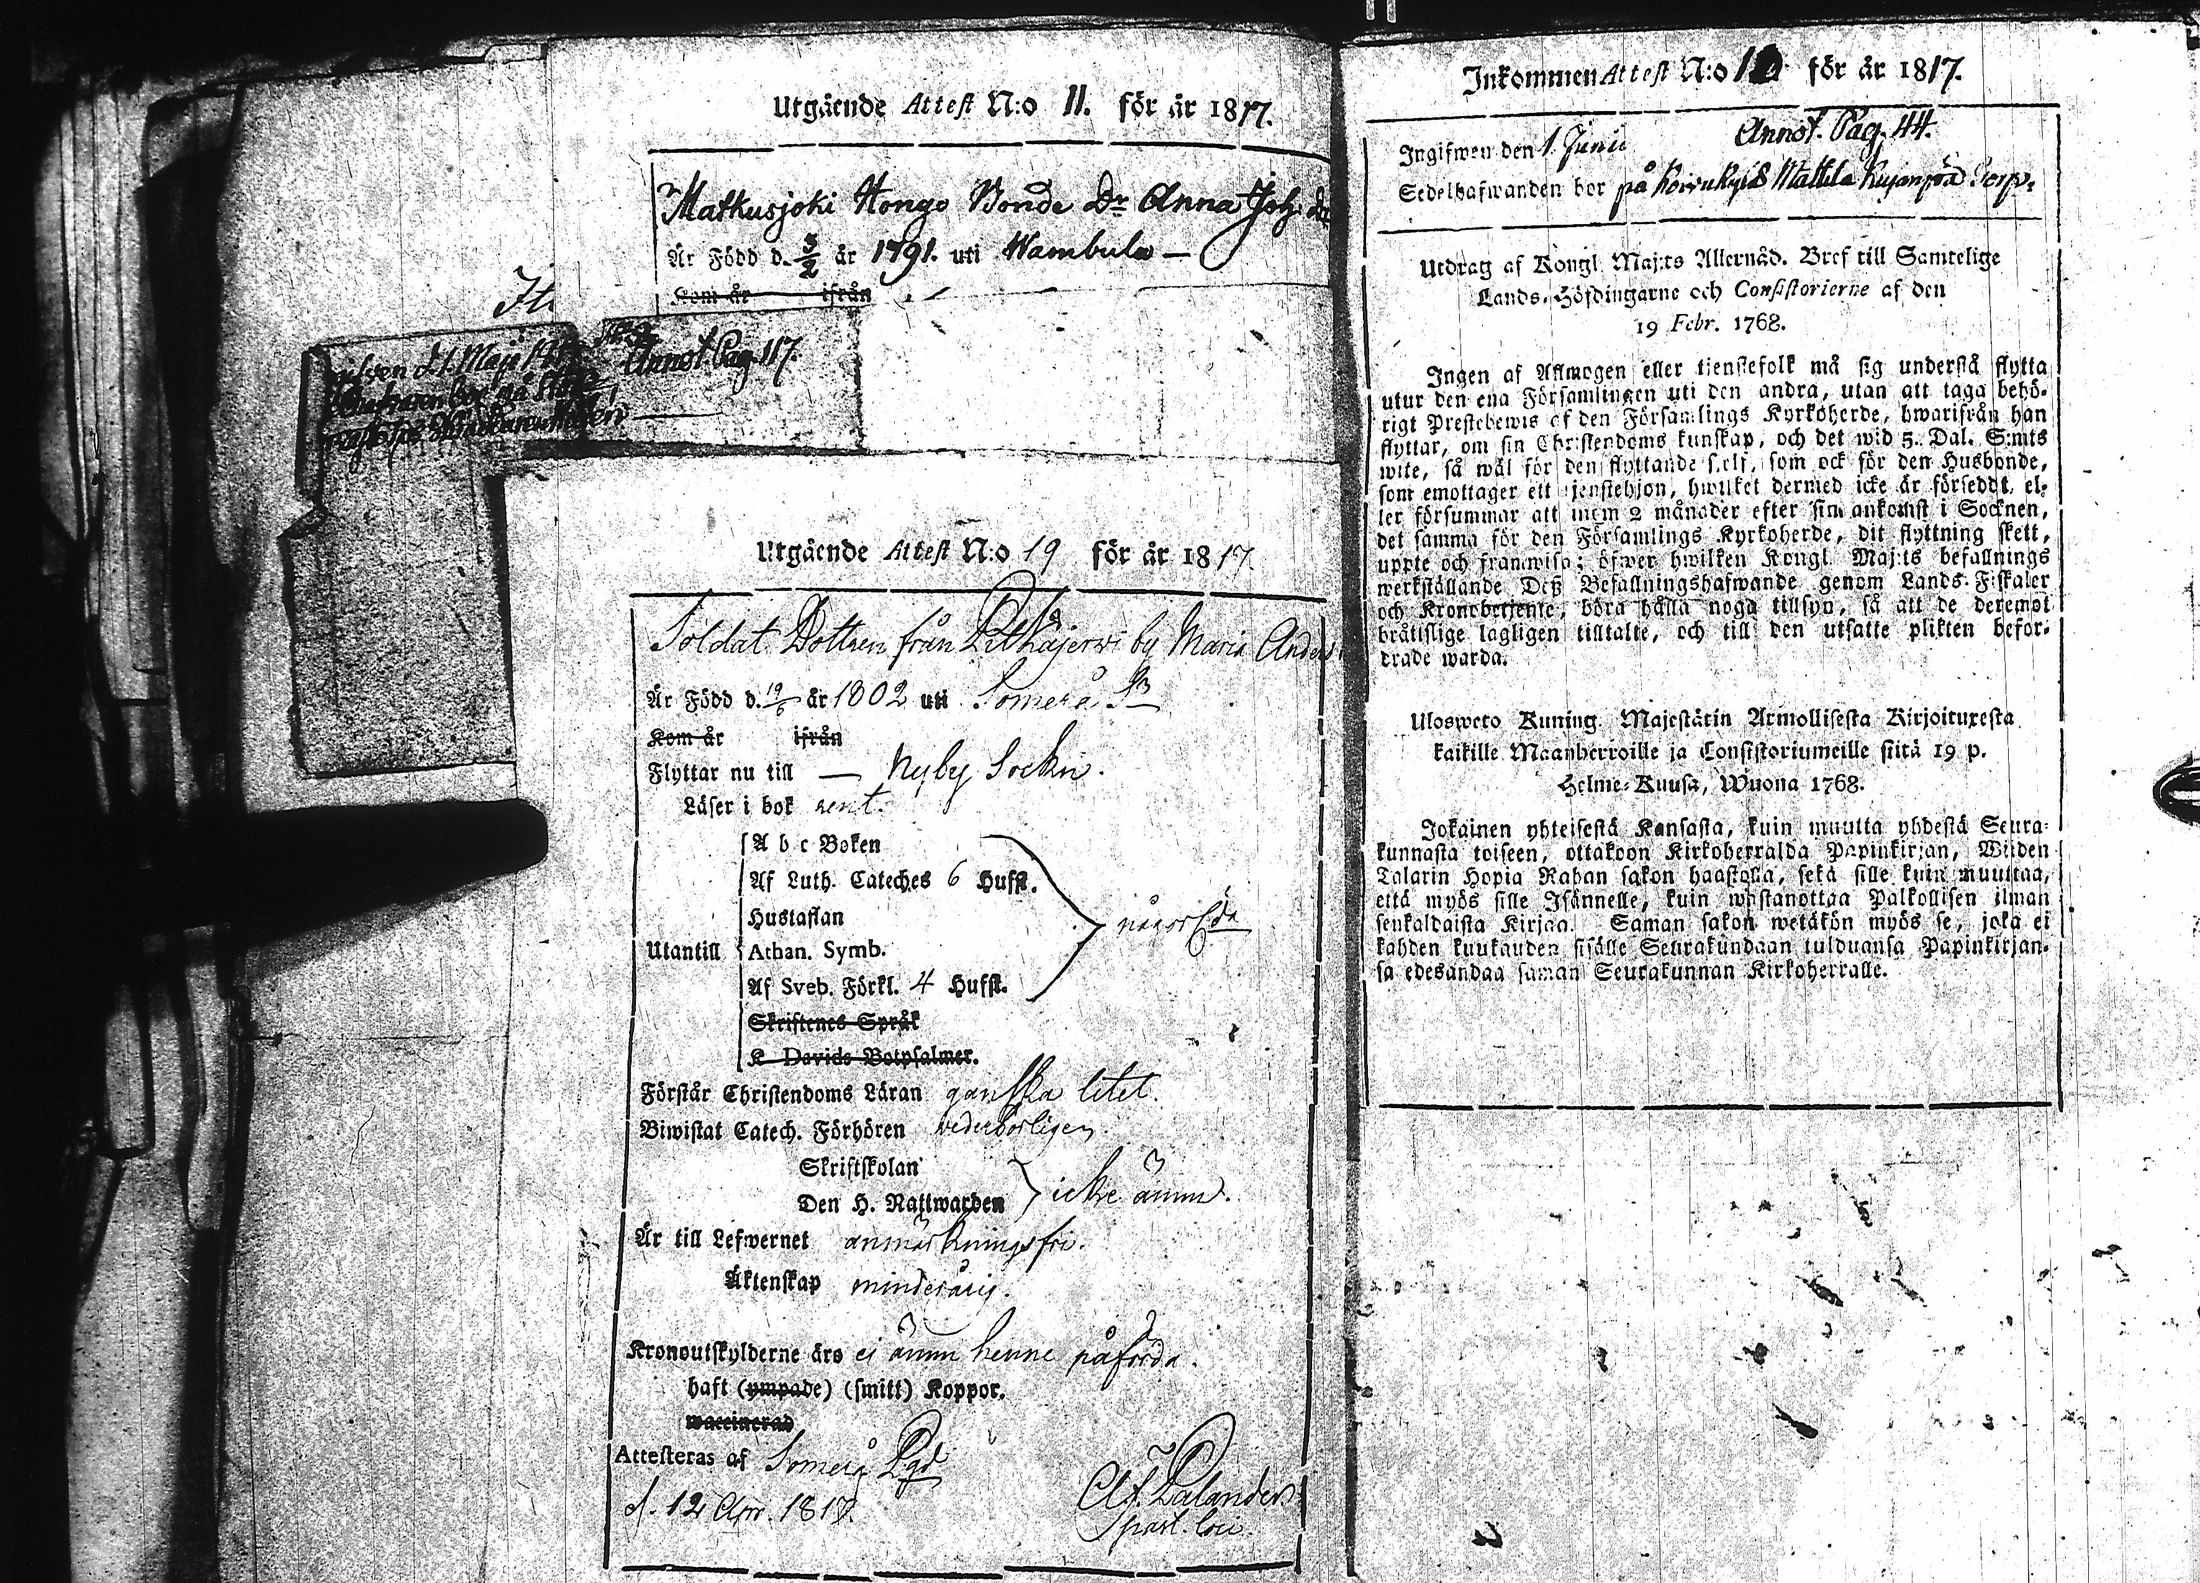 Utgående Attest N:o 11. för år 1817.
Matkusjoki Hongo Bonde Dr Anna Joh: dr
Är Född d. 3/2 år 1791. uti Wambula —
Kom år ifrån
Annot. Pag. 117.
Utgående Attest N:o 19 för år 1817
Soldat Dottren från Pitkäjerwi by Maria Anders
Är Född d. 19/6 år 1802 uti Somero Sn
Kom år ifrån
Flyttar nu till — Nyby Sockn.
Läser i bok rent.
A b c Boken
Af Luth. Cateches 6 Hufst.
Hustaflan
Utantill Athan. Symb.
Af Sveb. Förkl. 4 Hufst.
Skriftenes Språk
K Davids Botpsalmer.
Förstår Christendoms Läran ganska litet.
Biwistat Catech. Förhören vederbörligen
Skriftskolan
Den H. Nattwarden icke ännu.
Är till Lefwernet anmärkningsfri.
Äktenskap minderårig.
Kronoutskylderne äro ej ännu henne påförda.
haft (ympade) (smitt) Koppor.
waccinerad
Attesteras af Somero Pgd
d. 12 Apr. 1817.
Palander
past. loci.
Inkommen Attest N:o för år 1817.
Ingifwen den 1. Junii Annot. Pag. 44.
Sedelhafwanden bor på Mattila Kujanpää Torp.
Utdrag af Kongl. Maj:ts Allernåd. Bref till Samtelige
Lands-Höfdingarne och Consistorierne af den
19 Febr. 1768.
Ingen af Allmogen eller tjenstefolk må sig understå flytta
utur den ena Församlingen uti den andra, utan att taga behö-
rigt Prestebewis af den Församlings Kyrkoherde, hwarifrån han
flyttar, om sin Christendoms kunskap, och det wid 5. Dal. S:mts
wite, så wäl för den flyttande sjelf, som ock för den Husbonde,
som emottager ett tjenstehjon, hwilket dermed icke är försedt, el-
ler försummar att inom 2 månader efter sin ankomst i Socknen,
det samma för den Församlings Kyrkoherde, dit flyttning skett,
uppte och framwisa; öfwer hwilken Kongl. Maj:ts befallnings
werkställande Deß Befallningshafwande genom Lands-Fiskaler
och Kronobetjente, böra hålla noga tillsyn, så att de deremot
bråtislige lagligen tilltalte, och till den utsatte plikten befor-
drade warda.
Ulosweto Kuning. Majestätin Armollisesta Kirjoituxesta
kaikille Maanherroille ja Consistoriumeille siitä 19 p.
Helme-Kuusa, Wuona 1768.
Jokainen yhteisestä Kansasta, kuin muutta yhdestä Seura-
kunnasta toiseen, ottakoon Kirkoherralda Papinkirjan, Wiiden
Talarin Hopia Rahan sakon haastolla, sekä sille kuin muuttaa,
että myös sille Isännelle, kuin wastanottaa Palkollisen ilman
senkaldaista Kirjaa. Saman sakon wetäkön myös se, joka ei
kahden kuukauden sisälle Seurakundaan tulduansa Papinkirjan-
sa edesandaa saman Seurakunnan Kirkoherralle.